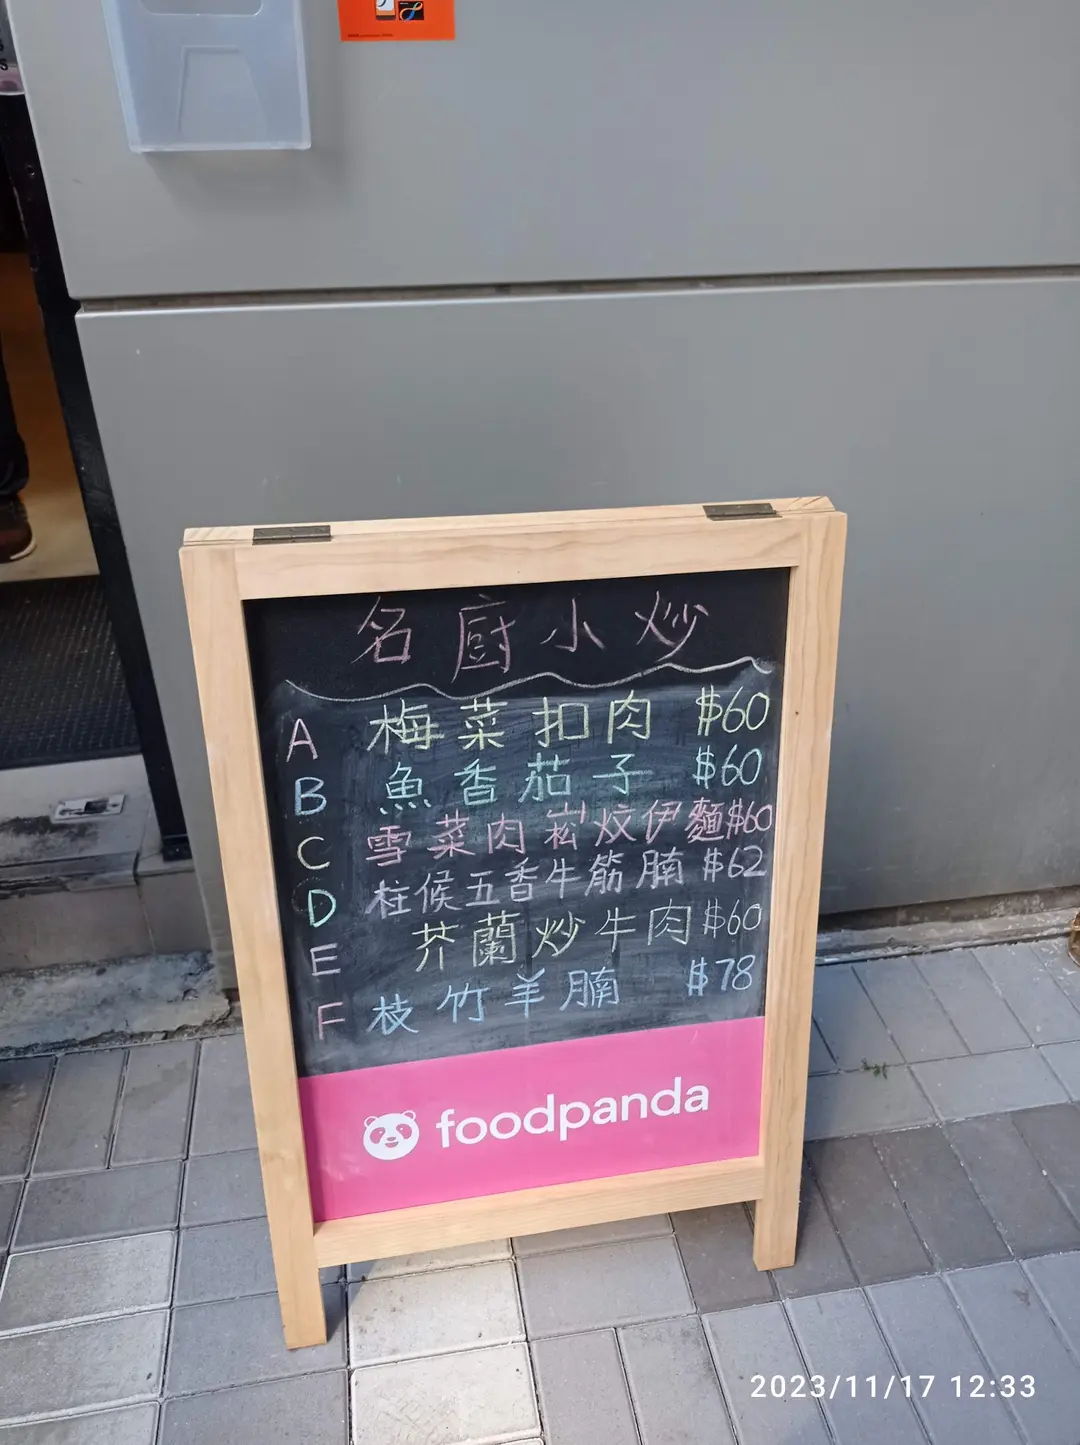 名廚小炒
A 梅菜扣肉 $60
B 魚香茄子 $60
C 雪菜肉崧炆伊麵 $60
D 柱候五香牛筋腩 $62
E 芥蘭炒牛肉 $60
F 枝竹羊腩 $78
foodpanda
2023/11/17 12:33